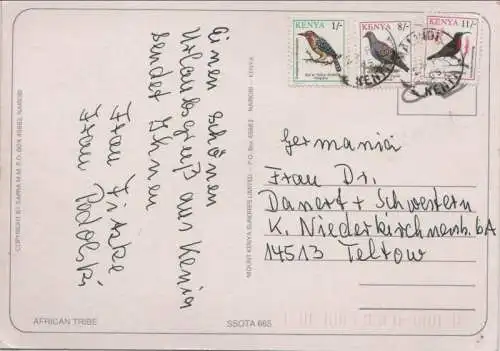 KENYA 1/-
KENYA 8/-
KENYA 11/-
KENYA
KENYA
Einen schönen
Urlaubsgruß aus Kenia
sendet Ihnen
Frau
Frau
Germania
Frau Dr.
Danert + Schwestern
K. Niederkirchnerstr. 6A
14513 Teltow
COPYRIGHT BY SAPRA M.M. P.O. BOX 45862, NAIROBI
MOUNT KENYA SUNDRIES LIMITED - P.O. Box 45862 NAIROBI - KENYA
AFRICAN TRIBE
SSOTA 665